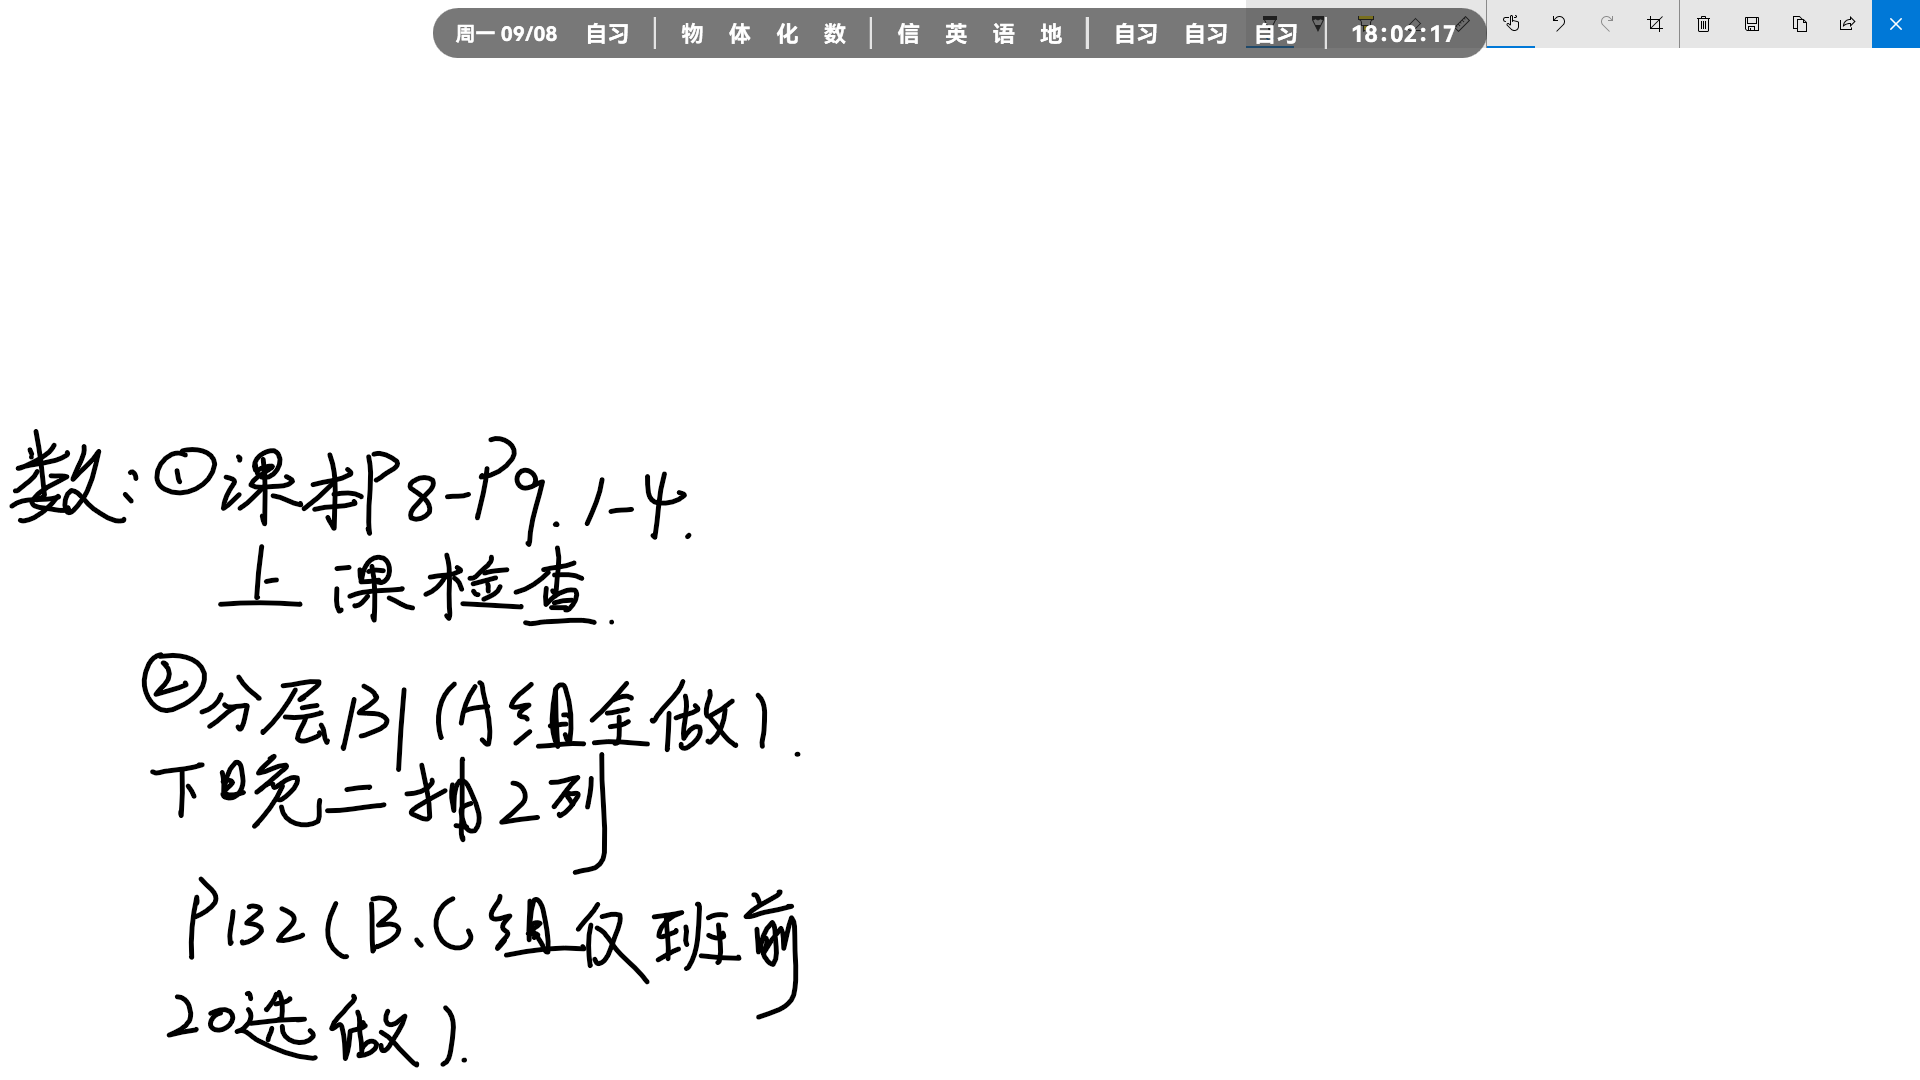 周一 09/08 自习 | 物 体 化 数 | 信 英 语 地 | 自习 自习 自习 | 18:02:17
数:①课本P8-P9.1-4.
上课检查.
②分层131(A组全做).
下晚二抽2列
P132(B、C组仅班前
20选做).